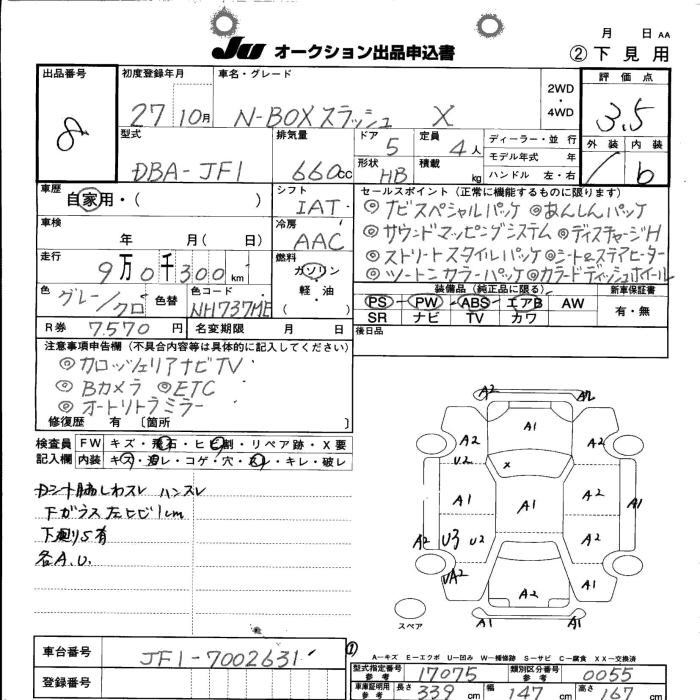 月 日 AA
JU オークション出品申込書 ②下見用
出品番号 8
初度登録年月 27 10月
車名・グレード N-BOXスラッシュ X
2WD・4WD
評価点 3.5
外装 内装 b
型式 DBA-JF1
排気量 660cc
ドア 5 定員 4人
形状 HB 積載 kg
ディーラー・並行
モデル年式 年
ハンドル 左・右
車歴 自家用・( )
シフト IAT
車検 年 月( 日)
冷房 AAC
走行 9万0千300km
燃料 ガソリン・軽・油 ( )
色 グレー/クロ 色替
色コード NH737ME
R券 7.570円 名変期限 月 日
セールスポイント (正常に機能するものに限ります)
◎ナビスペシャルパッケ ◎あんしんパッケ
◎サウンドマッピングシステム ◎ディスチャージH
◎ストリートスタイルパッケ ◎シート&ステアヒーター
◎ツートンカラーパッケ ◎カラードディッシュホイール
装備品 (純正品に限る) 新車保証書
PS PW ABS エアB AW 有・無
SR ナビ TV カワ
後日品
注意事項申告欄 (不具合内容等は具体的に記入してください)
◎カロッツェリアナビTV
◎Bカメラ ◎ETC
◎オートリトラミラー
修復歴 有 〔箇所 〕
検査員 FW キズ・飛石・ヒビ割・リペア跡・X要
記入欄 内装 キズ・汚レ・コゲ・穴・スレ・キレ・破レ
ハンスレ
Fガラス左ヒビ1cm
下廻りS有
各A.U.
A2 A2
A1
A2 A2
U2 X
A1 A1 A2 A1
A2 U3 U2 A2
UA2 A2 A1
A1 A1
スペア
A-キズ E-エクボ U-凹み W-補修跡 S-サビ C-腐食 XX-交換済
車台番号 JF1-7002631
登録番号
①
型式指定番号 参考 17075 類別区分番号 参考 0055
車庫証明用 参考 長さ 339cm 幅 147cm 高さ 167cm